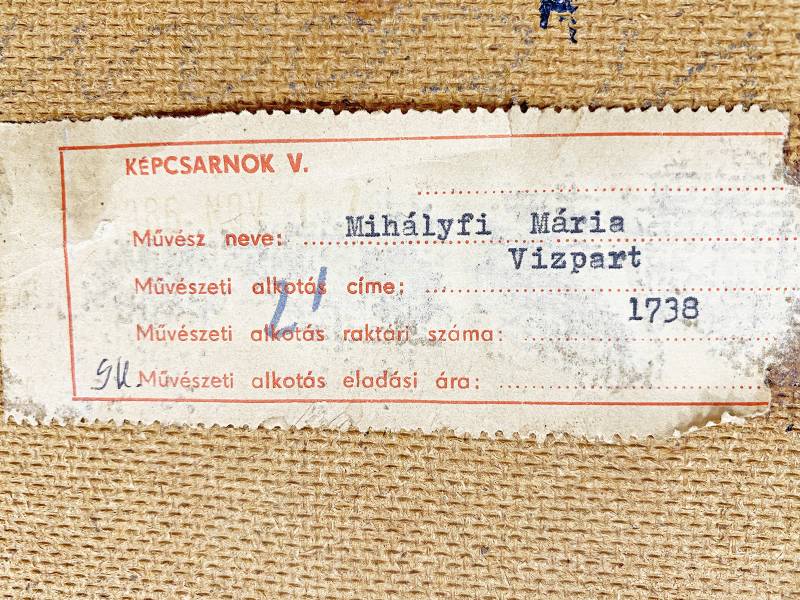 KÉPCSARNOK V.
986 NOV 1 7
Művész neve: Mihályfi Mária
Művészeti alkotás címe: Vizpart
Művészeti alkotás raktári száma: 1738
Művészeti alkotás eladási ára: